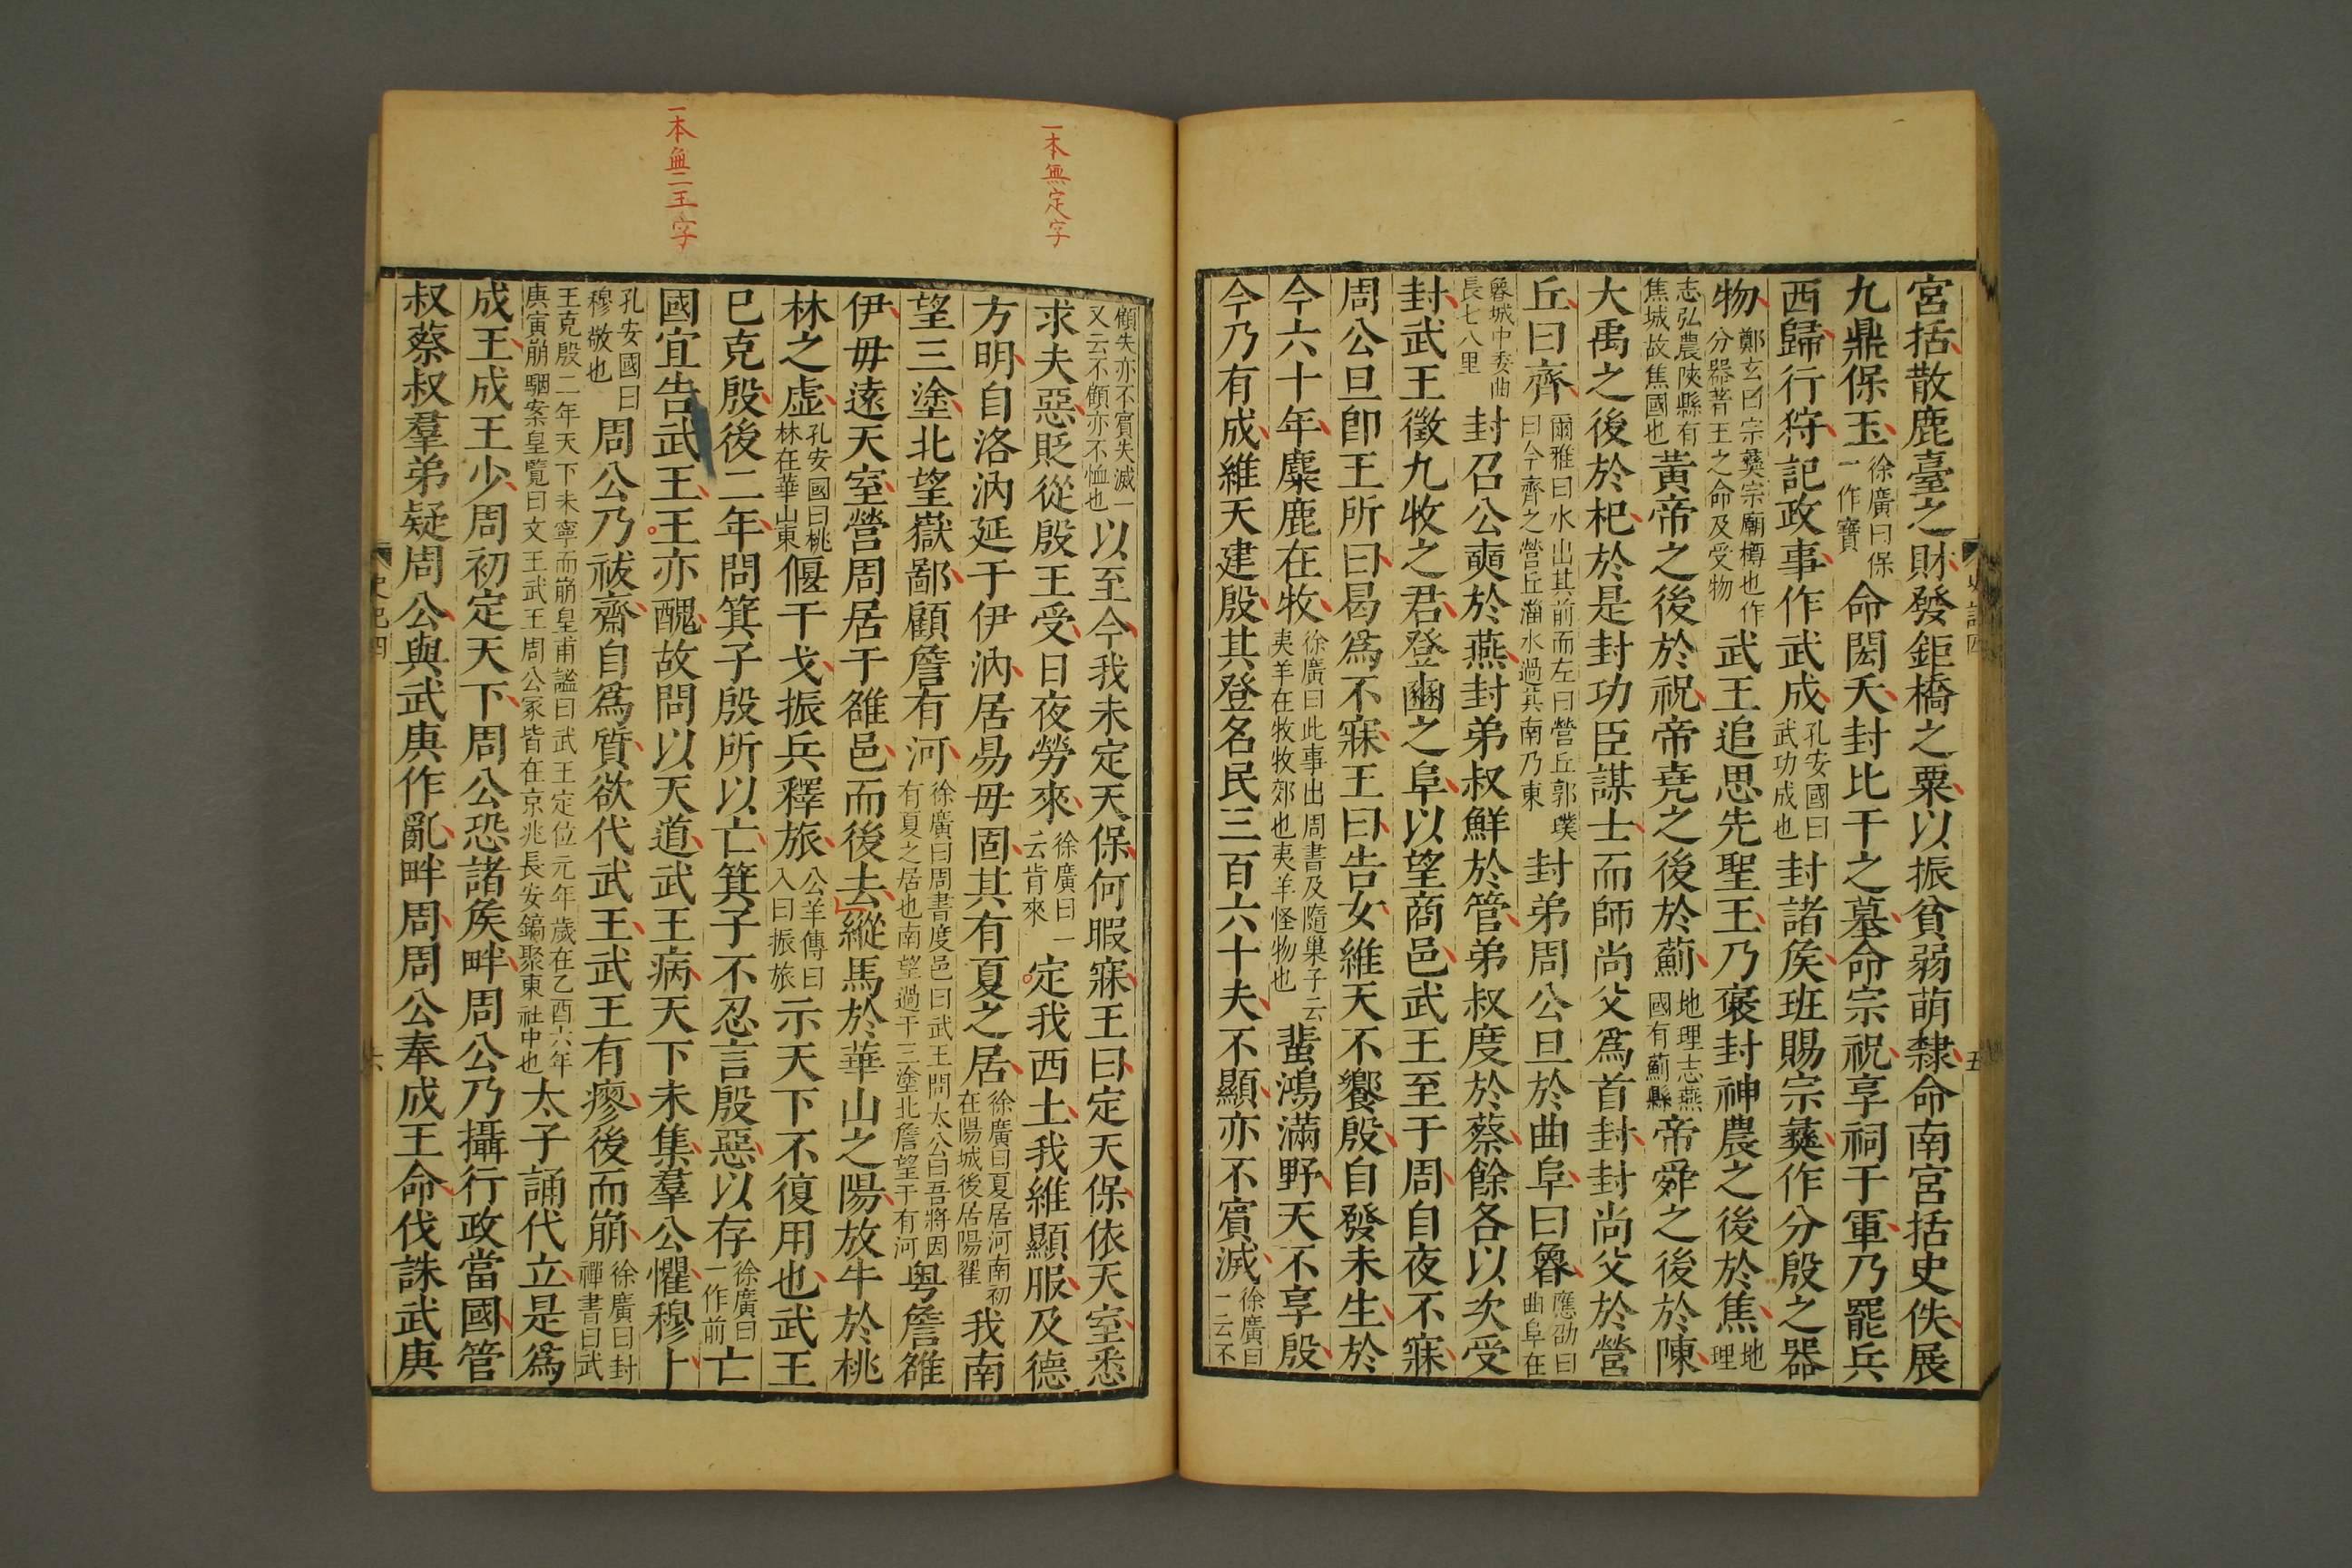 宮括散鹿臺之財發鉅橋之粟以振貧弱萌隸命南宮括史佚展
九鼎保玉徐廣曰保一作寶命閎夭封比干之墓命宗祝享祠于軍乃罷兵
西歸行狩記政事作武成孔安國曰武功成也封諸侯班賜宗彝作分殷之器
物鄭玄曰宗彝宗廟樽也作分器著王之命及受物武王追思先聖王乃襃封神農之後於焦地理
志弘農陝縣有焦城故焦國也黃帝之後於祝帝堯之後於薊地理志燕國有薊縣帝舜之後於陳
大禹之後於杞於是封功臣謀士而師尚父爲首封封尚父於營
丘曰齊爾雅曰水出其前而左曰營丘郭璞曰今齊之營丘淄水過其南乃東封弟周公旦於曲阜曰魯應劭曰曲阜在
魯城中委曲長七八里封召公奭於燕封弟叔鮮於管弟叔度於蔡餘各以次受
封武王徵九牧之君登豳之阜以望商邑武王至于周自夜不寐
周公旦卽王所曰曷爲不寐王曰告女維天不饗殷自發未生於
今六十年麋鹿在牧徐廣曰此事出周書及隨巢子云夷羊在牧牧郊也夷羊怪物也蜚鴻滿野天不享殷
今乃有成維天建殷其登名民三百六十夫不顯亦不賓滅徐廣曰一云不
顧失亦不賓失滅一又云不顧亦不恤也以至今我未定天保何暇寐王曰定天保依天室悉
求夫惡貶從殷王受日夜勞來徐廣曰一云肯來定我西土我維顯服及德
方明自洛汭延于伊汭居易毋固其有夏之居徐廣曰夏居河南初在陽城後居陽翟我南
望三塗北望嶽鄙顧詹有河徐廣曰周書度邑曰武王問太公曰吾將因有夏之居也南望過于三塗北詹望于有河粤詹雒
伊毋遠天室營周居于雒邑而後去縱馬於華山之陽放牛於桃
林之虛孔安國曰桃林在華山東偃干戈振兵釋旅公羊傳曰入曰振旅示天下不復用也武王
已克殷後二年問箕子殷所以亡箕子不忍言殷惡以存徐廣曰一作前亡
國宜告武王王亦醜故問以天道武王病天下未集羣公懼穆卜
孔安國曰穆敬也周公乃祓齋自爲質欲代武王武王有瘳後而崩徐廣曰封禪書曰武
王克殷二年天下未寧而崩皇甫謐曰武王定位元年歲在乙酉六年庚寅崩駰案皇覽曰文王武王周公冢皆在京兆長安鎬聚東社中也太子誦代立是爲
成王成王少周初定天下周公恐諸侯畔周公乃攝行政當國管
叔蔡叔羣弟疑周公與武庚作亂畔周周公奉成王命伐誅武庚
一本無定字
一本無二王字
史記四
五
史記四
六